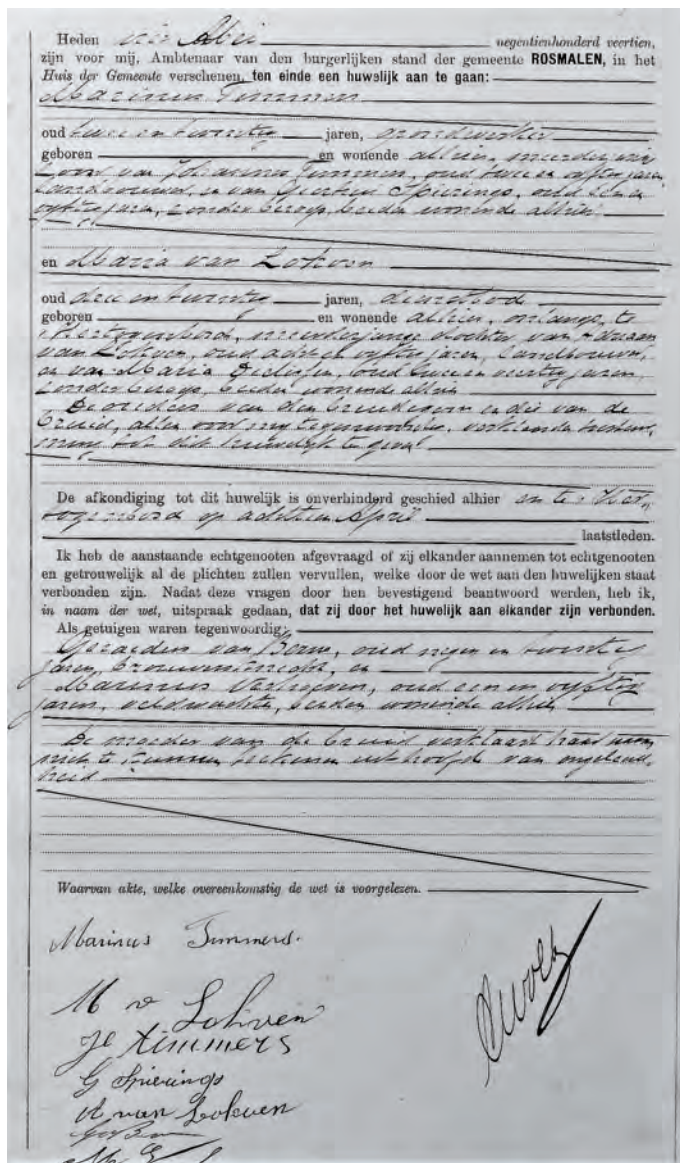 Heden vier Mei negentienhonderd veertien,
zijn voor mij, Ambtenaar van den burgerlijken stand der gemeente ROSMALEN, in het
Huis der Gemeente verschenen, ten einde een huwelijk aan te gaan:
Marinus Timmers
oud twee en twintig jaren, grondwerker
geboren en wonende alhier, meerderjarige
zoon van Johannes Timmers, oud twee en vijftig jaren,
landbouwer, en van Geertrui Spierings, oud een en
vijftig jaren, zonder beroep, beiden wonende alhier
en Maria van Lokven
oud drie en twintig jaren, dienstbode
geboren en wonende alhier, onlangs te
's Hertogenbosch, meerderjarige dochter van Adriaan
van Lokven, oud acht en vijftig jaren, landbouwer,
en van Maria oud twee en veertig jaren,
zonder beroep, beiden wonende alhier
De ouders van den bruidegom en die van de
bruid, allen voor mij tegenwoordig, verklaarden toestem-
ming tot dit huwelijk te geven
De afkondiging tot dit huwelijk is onverhinderd geschied alhier en te 's Her-
togenbosch op achttien April
laatstleden.
Ik heb de aanstaande echtgenooten afgevraagd of zij elkander aannemen tot echtgenooten
en getrouwelijk al de plichten zullen vervullen, welke door de wet aan den huwelijken staat
verbonden zijn. Nadat deze vragen door hen bevestigend beantwoord werden, heb ik,
in naam der wet, uitspraak gedaan, dat zij door het huwelijk aan elkander zijn verbonden.
Als getuigen waren tegenwoordig:
Gerardus van oud negen en twintig
jaren, brouwersknecht, en
Marinus Verhoeven, oud een en vijftig
jaren, veldwachter, beiden wonende alhier
De moeder van de bruid verklaart haar naam
niet te kunnen teekenen uit hoofde van ongeleerd-
heid
Waarvan akte, welke overeenkomstig de wet is voorgelezen.
Marinus Timmers.
M v Lokven
Js Timmers
G Spierings
A van Lokven